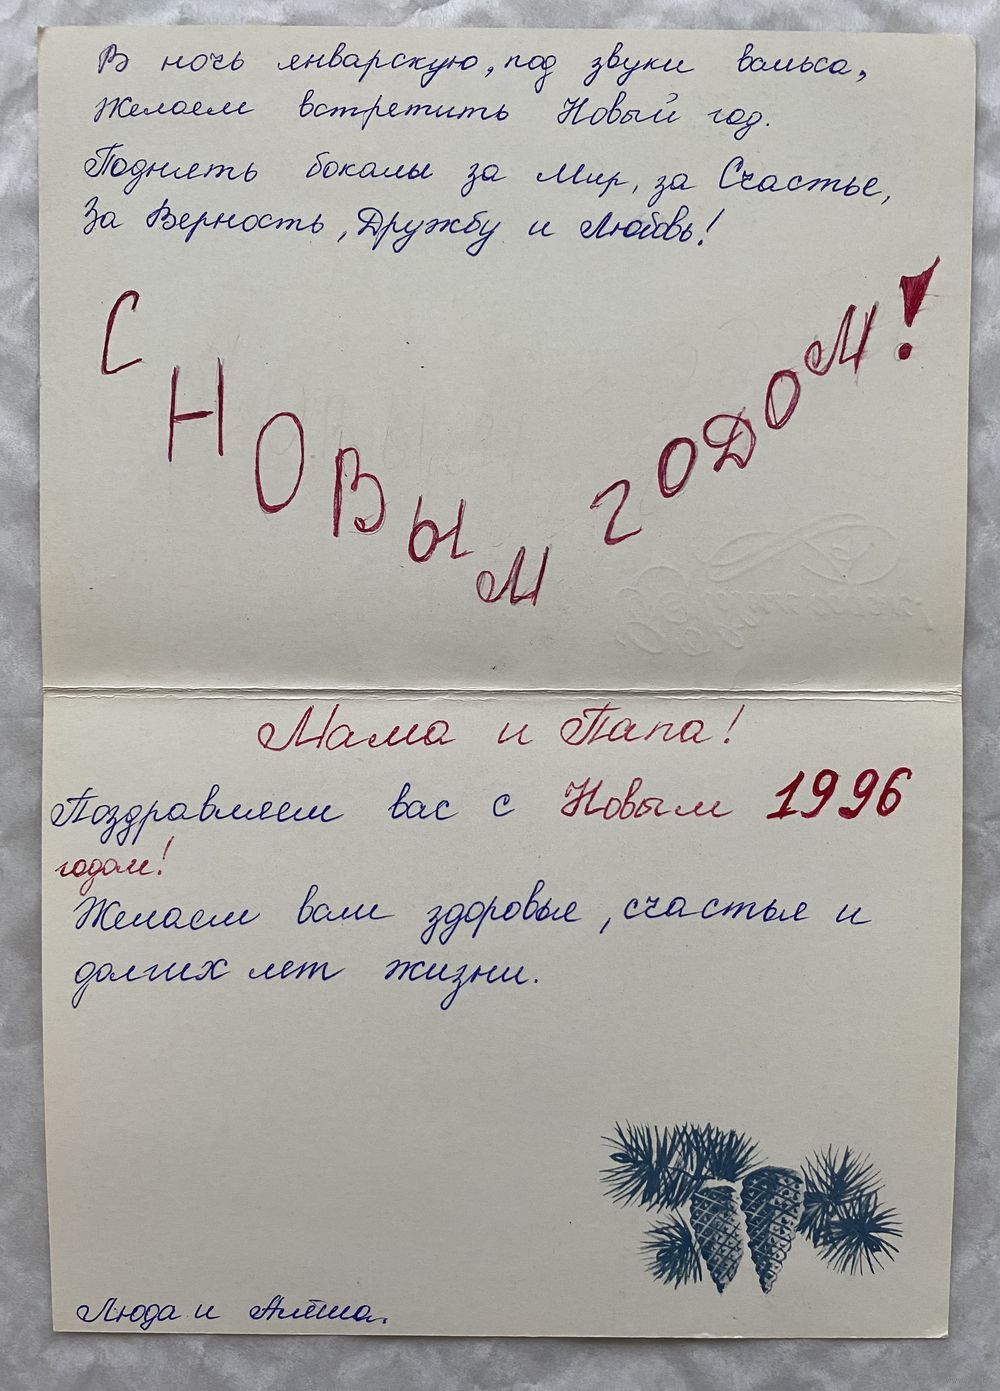 В ночь январскую, под звуки вальса,
Желаем встретить Новый год.
Поднять бокалы за Мир, за Счастье,
За Верность, Дружбу и Любовь!
С Новым годом!
Мама и Папа!
Поздравляем вас с Новым 1996
годом!
Желаем вам здоровье, счастье и
долгих лет жизни.
Люда и Алёша.